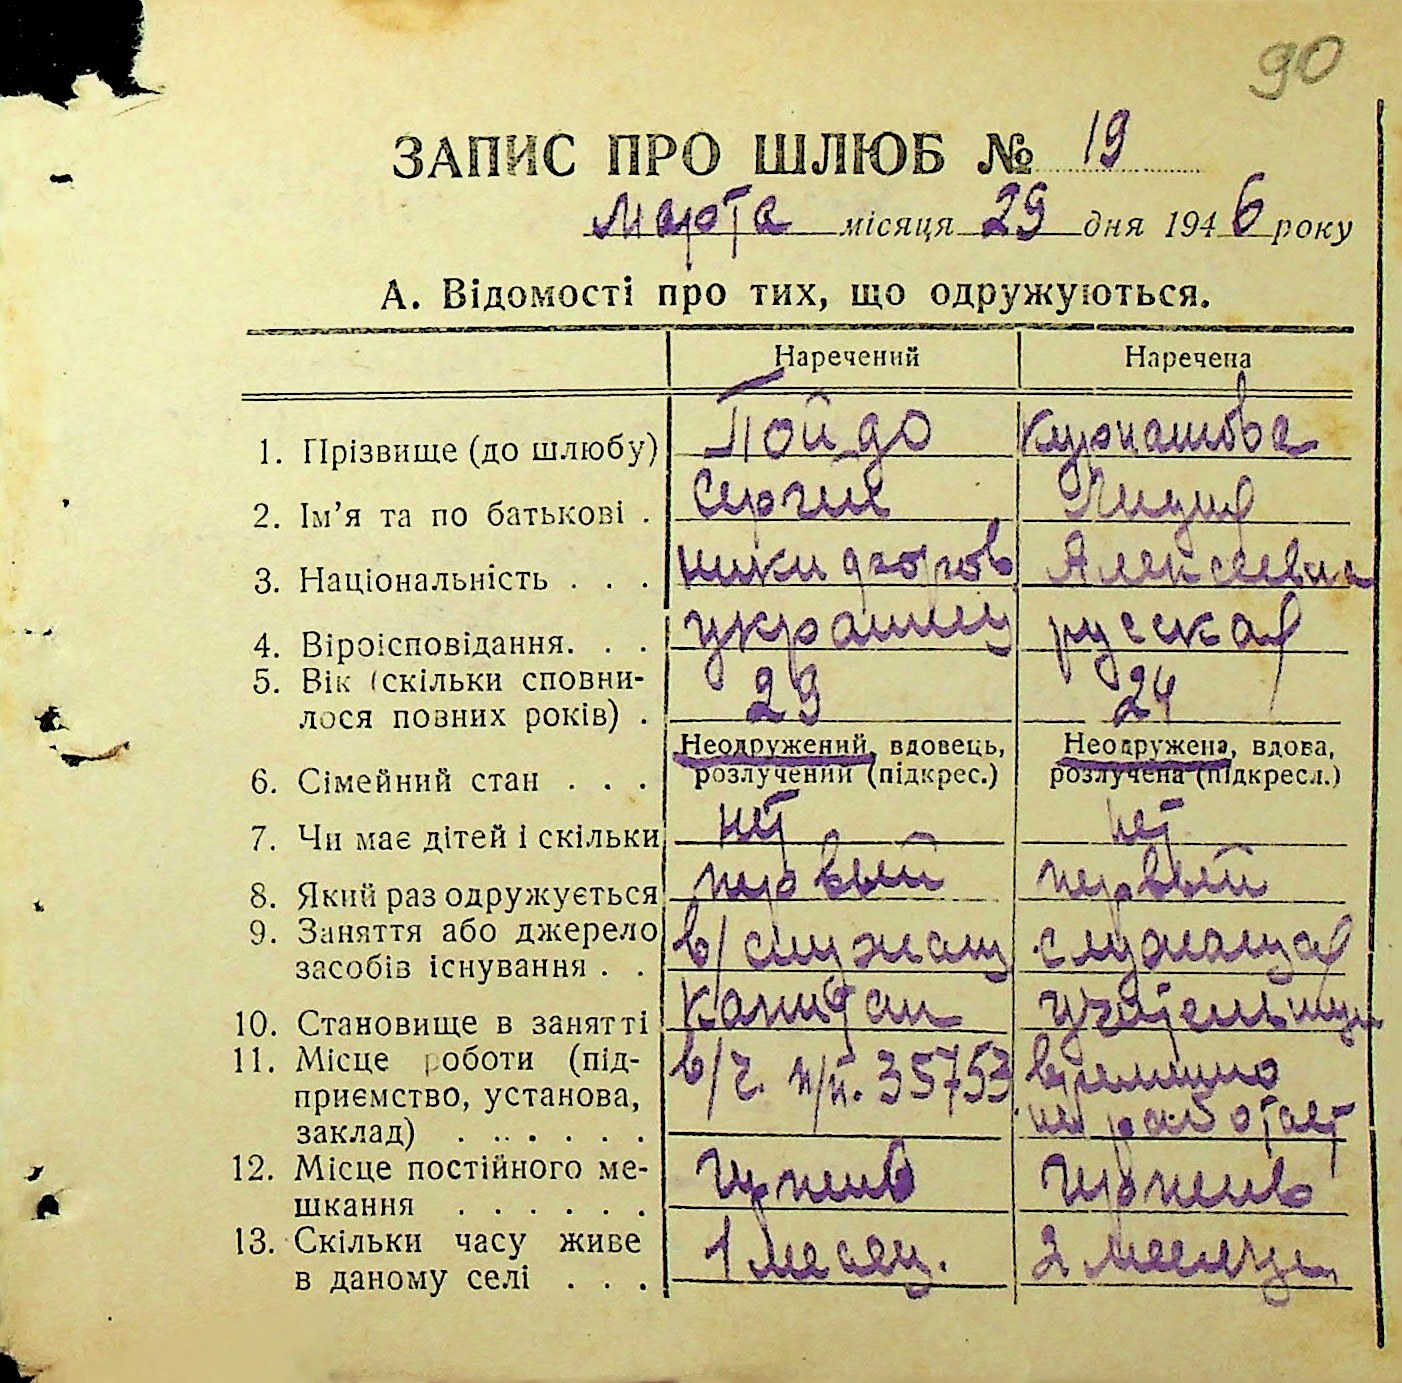 90
ЗАПИС ПРО ШЛЮБ № 19
Марта місяця 29 дня 1946 року
А. Відомості про тих, що одружуються.
Наречений Наречена
1. Прізвище (до шлюбу) Пойдо
2. Ім'я та по батькові . Сергей Лидия
3. Національність . . . Никифоров Алексеевна
4. Віроісповідання. . . украинец русская
5. Вік (скільки сповни-
лося повних років) . 29 24
Неодружений, вдовець, Неодружена, вдова,
6. Сімейний стан . . . розлучений (підкрес.) розлучена (підкресл.)
7. Чи має дітей і скільки нет нет
8. Який раз одружується первый первый
9. Заняття або джерело
засобів існування . . в/служащ служащая
10. Становище в занятті капитан учительница
11. Місце роботи (під- в/ч. п/п. 35753 временно
приємство, установа, не работает
заклад) . . . . . . .
12. Місце постійного ме- Ирпень Ирпень
шкання . . . . . .
13. Скільки часу живе 1 месяц. 2 месяца
в даному селі . . .